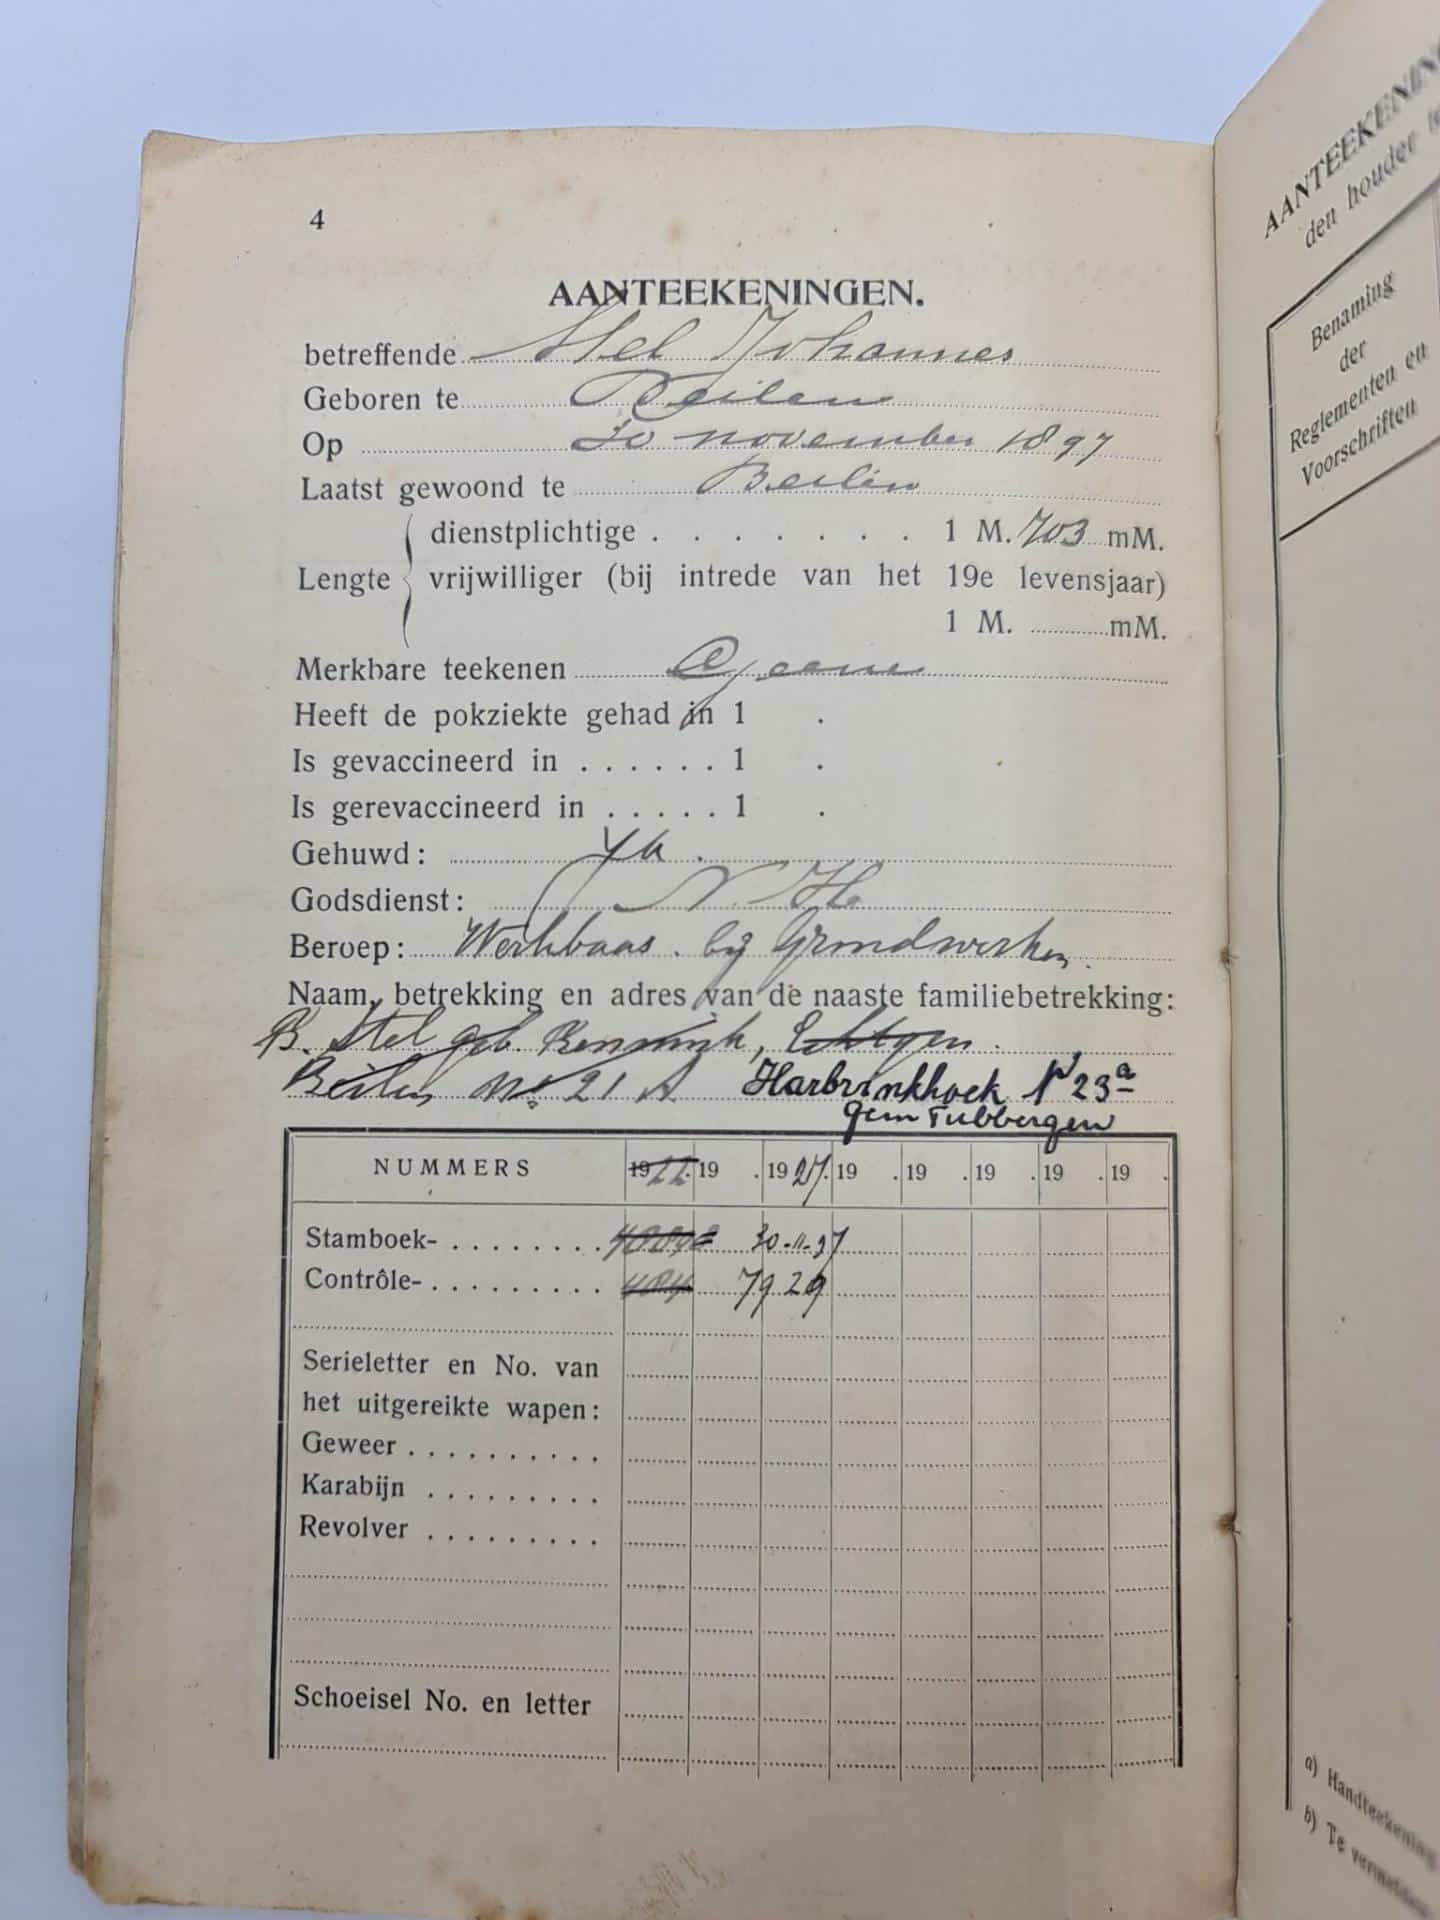 4
AANTEEKENINGEN.
betreffende Stel Johannes
Geboren te Beilen
Op 30 november 1897
Laatst gewoond te Beilen
dienstplichtige . . . . . . . 1 M. 703 mM.
Lengte vrijwilliger (bij intrede van het 19e levensjaar)
1 M. mM.
Merkbare teekenen Geene
Heeft de pokziekte gehad in 1 .
Is gevaccineerd in . . . . . . 1 .
Is gerevaccineerd in . . . . . 1 .
Gehuwd: Ja.
Godsdienst: N. H.
Beroep: Werkbaas. bij Grondwerken.
Naam, betrekking en adres van de naaste familiebetrekking:
B. Stel geb. Echtgen.
Beilen No. 21 A Harbrinkhoek N 23a
gem Tubbergen
NUMMERS 1922. 19 . 1927. 19 . 19 . 19 . 19 . 19 .
Stamboek- . . . . . . . . 30-11-97
Contrôle- . . . . . . . . . 484 7929
Serieletter en No. van
het uitgereikte wapen:
Geweer . . . . . . . . . .
Karabijn . . . . . . . . .
Revolver . . . . . . . . .
Schoeisel No. en letter
AANTEEKENING
den houder
Benaming
der
Reglementen en
Voorschriften
a) Handteekening
b) Te vermelden